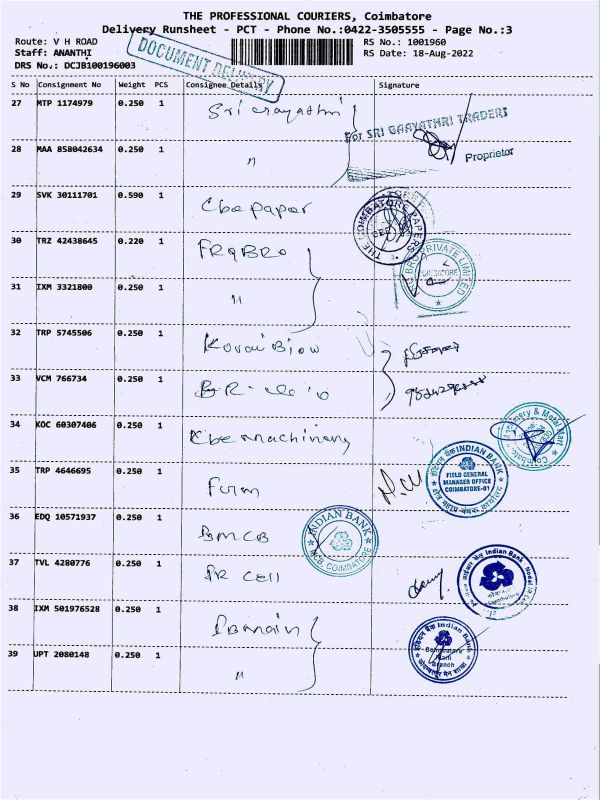 THE PROFESSIONAL COURIERS, Coimbatore
Delivery Runsheet - PCT - Phone No.:0422-3505555 - Page No.:3
Route: V H ROAD
RS No.: 1001960
Staff: ANANTHI
RS Date: 18-Aug-2022
DRS No.: DCJB100196003
DOCUMENT DELIVERY
S No Consignment No Weight PCS Consignee Details Signature
27 MTP 1174979 0.250 1 Sri
For SRI GAAYATHRI TRADERS
Proprietor
28 MAA 858042634 0.250 1 "
29 SVK 30111701 0.590 1 Cbe paper
THE COIMBATORE PAPERS
30 TRZ 42438645 0.220 1
BRO PRIVATE LIMITED
COIMBATORE
31 IXM 3321800 0.250 1 "
32 TRP 5745506 0.250 1 Kovai
33 VCM 766734 0.250 1
34 KOC 60307406 0.250 1 Cbe Machinery
35 TRP 4646695 0.250 1
INDIAN BANK
FIELD GENERAL
MANAGER OFFICE
COIMBATORE-01
36 EDQ 10571937 0.250 1
INDIAN BANK
COIMBATORE
37 TVL 4280776 0.250 1 PR Cell
Indian Bank
38 IXM 501976528 0.250 1
Indian Bank
Coimbatore
Main
Branch
39 UPT 2080148 0.250 1 "